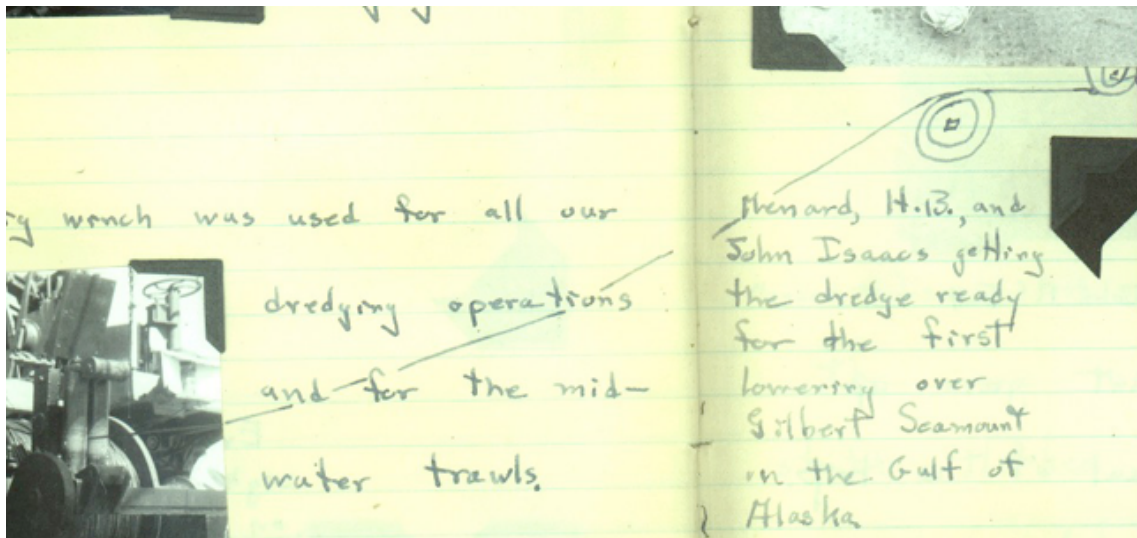 wnch was used for all our
dredging operations
and for the mid-
water trawls.
Menard, H.B., and
John Isaacs getting
the dredge ready
for the first
lowering over
Gilbert Seamount
in the Gulf of
Alaska